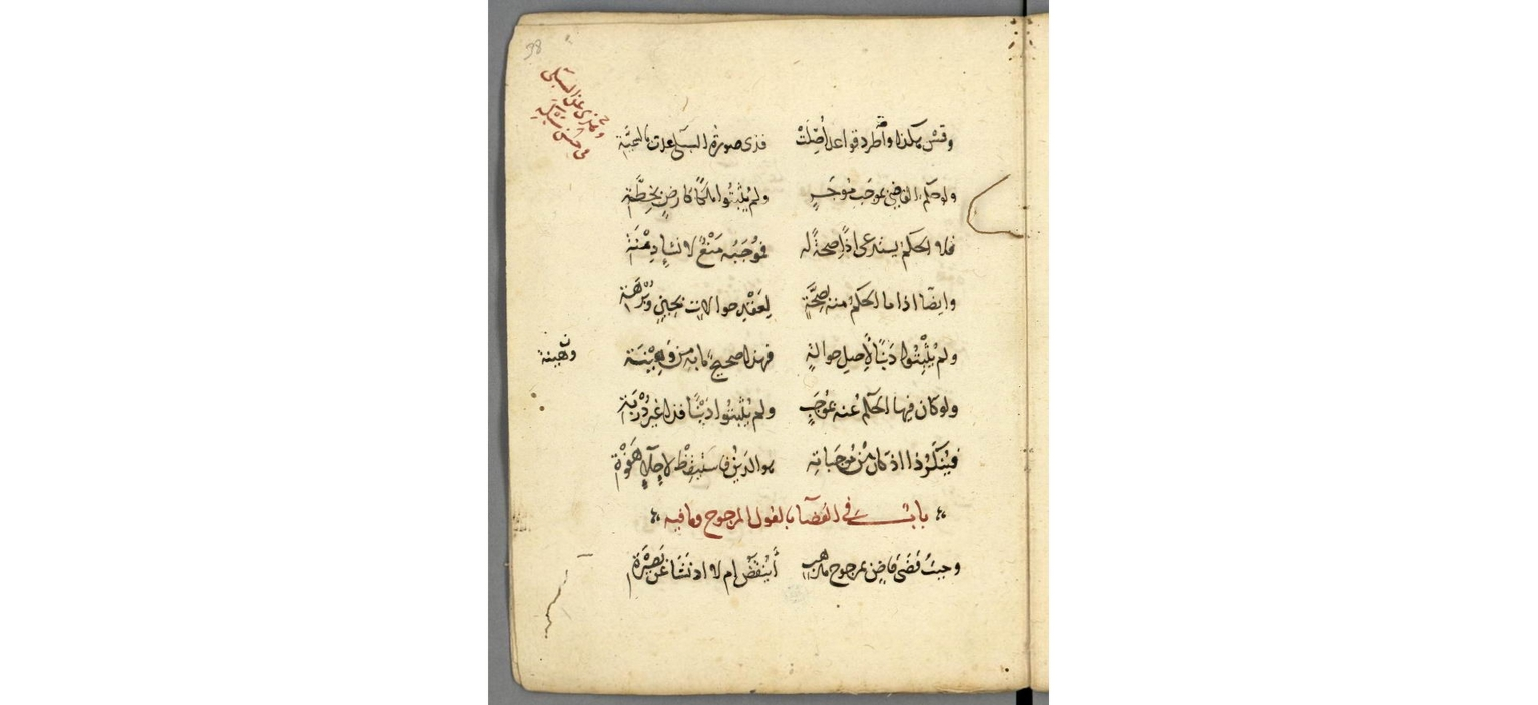 38
وقس هكذا واطرد قواعد أُصِّلَتْ فذى صورة السبكى عدت بالنجبَّة
ولو حكم القاضى بموجَب مُوجَرٍ ولم يُثْبِتُوا ملكًا كارضٍ بخِطَّة
فلا الحكم يستدعى اذًا صحةً له فمُوجَبُه مَنْعٌ لانشاء
وايضًا اذا ما الحكمُ منه بصِحَّةٍ لِعَقْدِ حوالات بحينٍ وبُرْهَة
ولم يُثْبِتُوا دَيْنًا لِأَصلِ حوالةٍ فهذا صحيح ما به من
وَهِينة
ولو كان فيها الحكم عنه بمُوجَبٍ ولم يُثْبِتُوا دَيْنًا فذا غير دُرْبَة
فيُنكَرُ ذا اذ كان من مُوجَباته هو الدَيْنُ فاستيقظ لاجل هَفْوَة
باب فى القضا بالقول المرجوح وما فيه
وحيثُ قَضَى قاضٍ بمرجوح مذهب أَيُنْقَضُ ام لا اذ نَشَا عن بَصِيْرَة
ويُعزى عن السبكى
فى حسن سبكه